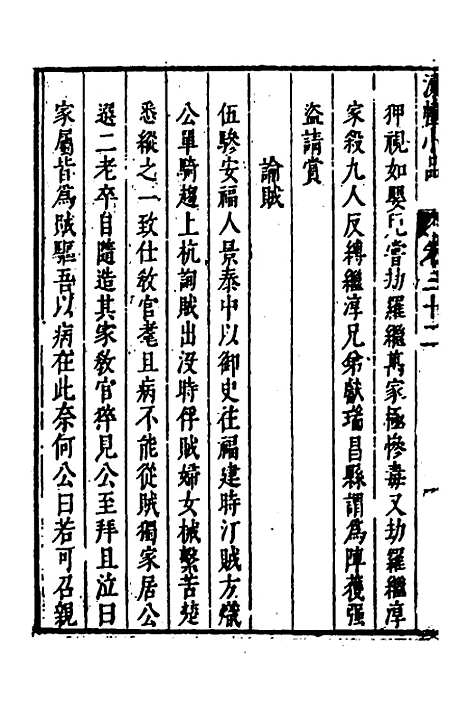 湧幢小品 卷之三十二
狎視如嬰兒嘗劫羅繼萬家極慘毒又劫羅繼淳
家殺九人反縛繼淳兄弟獻瑞昌縣謂爲陣獲强
盗請賞
論賊
伍驂安福人景泰中以御史往福建時汀賊方熾
公單騎趨上杭詗賊出没時俘賊婦女械繫苦楚
悉縱之一致仕敎官耄且病不能從賊獨家居公
選二老卒自隨造其家敎官瘁見公至拜且泣曰
家屬皆爲賊驅吾以病在此奈何公曰若可召親